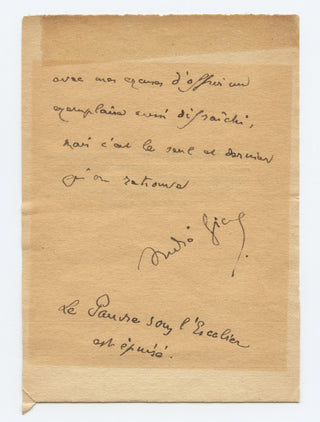 avec mes excuses d'offrir un
exemplaire aussi défraîchi,
mais c'est le seul et dernier
qu'on retrouve
Le Pauvre sous l'Escalier
est épuisé.